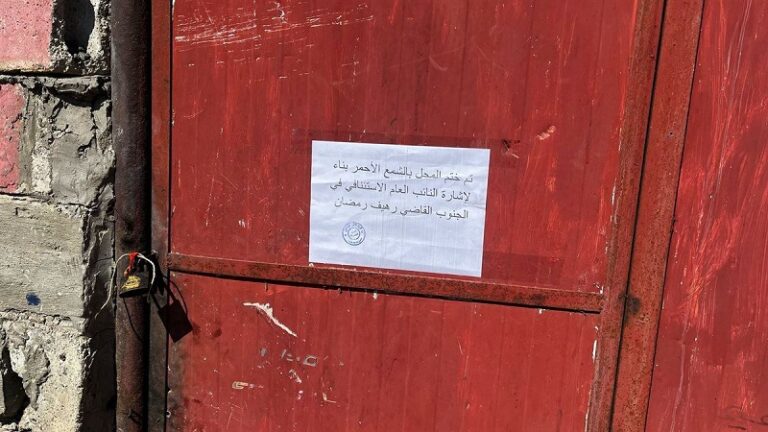 تم ختم المحل بالشمع الأحمر بناء
لاشارة النائب العام الاستئنافي في
الجنوب القاضي رهيف رمضان